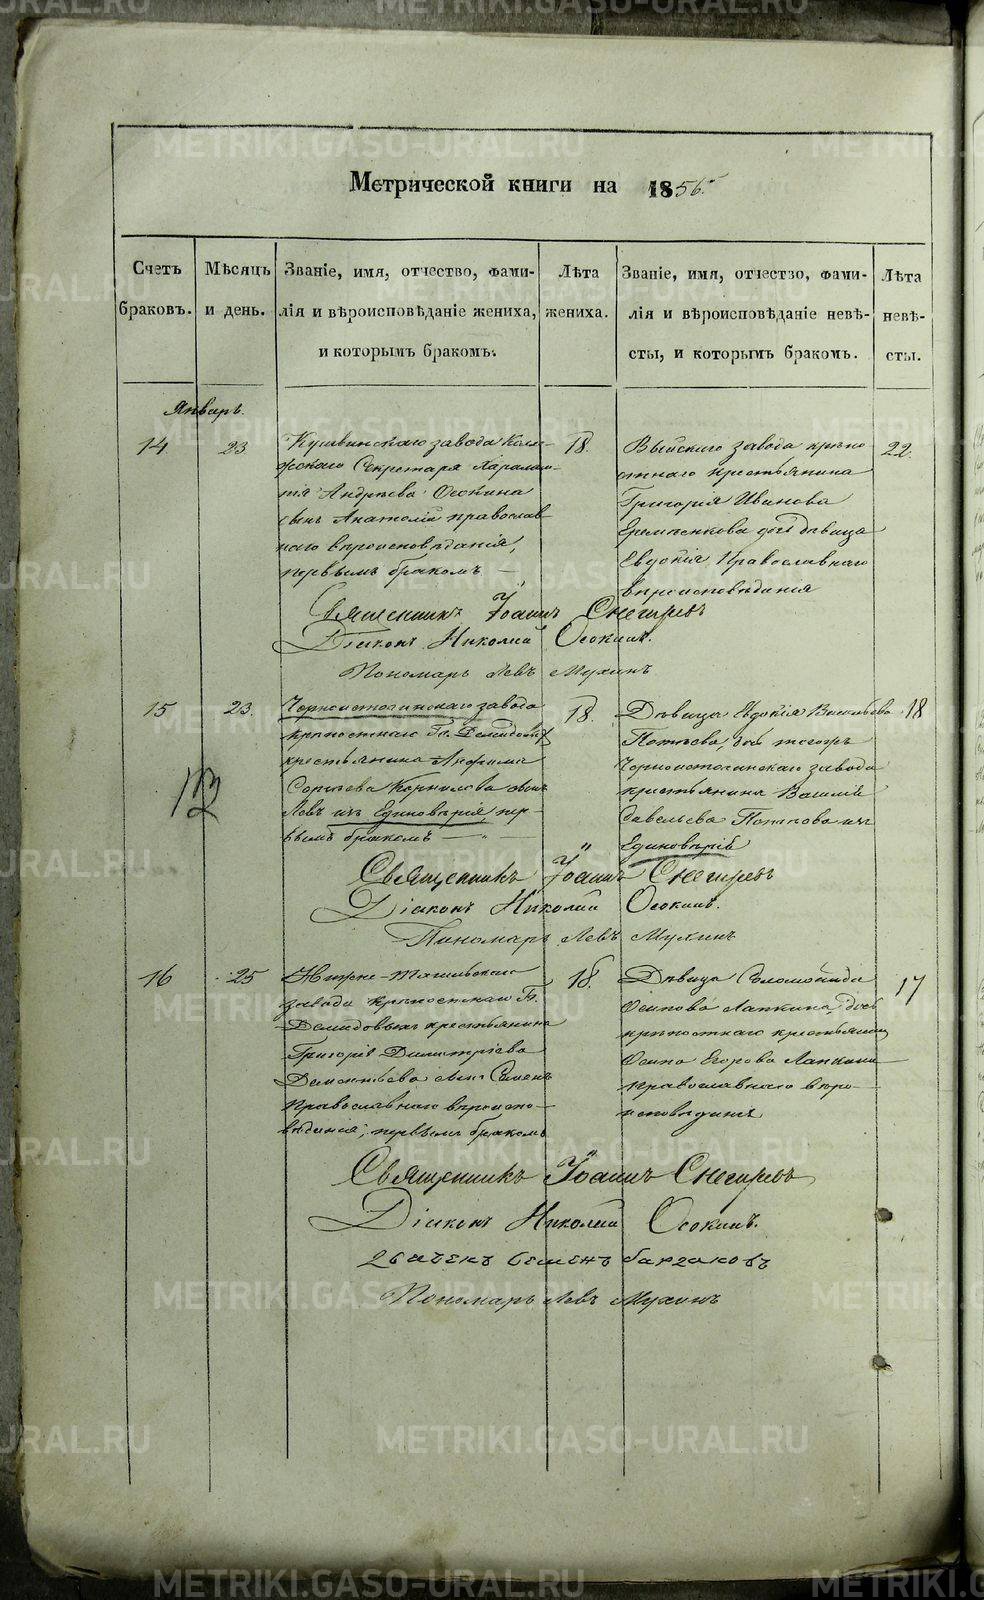 Метрической книги на 1856.
Счетъ браковъ.
Мѣсяцъ и день.
Званіе, имя, отчество, фами-
лія и вѣроисповѣданіе жениха,
и которымъ бракомъ.
Лѣта жениха.
Званіе, имя, отчество, фами-
лія и вѣроисповѣданіе невѣ-
сты, и которымъ бракомъ.
Лѣта невѣ-
сты.
Январь.
14
23
Кушвинскаго завода Колле-
жскаго Секретаря
Андреева Осокина
сынъ Анатолій православ-
наго вѣроисповѣданія,
первымъ бракомъ —
18.
Выйскаго завода крѣпо-
стнаго крестьянина
Григорія Иванова
дочь дѣвица
Евдокія Православнаго
вѣроисповѣданія
22.
Священникъ Іоаннъ Снегиревъ
Діаконъ Николай Осокинъ.
Пономарь Левъ Мухинъ
15
23.
Черноисточинскаго завода
крѣпостнаго Гг. Демидовыхъ
крестьянина
Корнилова сынъ
Левъ изъ Единовѣрія, пер-
вымъ бракомъ —
18.
Дѣвица Евдокія Васильева
дочь
Черноисточинскаго завода
крестьянина Василія
Савельева изъ
Единовѣрія
18
Священникъ Іоаннъ Снегиревъ
Діаконъ Николай Осокинъ.
Пономарь Левъ Мухинъ
16
25
Нижне-Тагильскаго
завода крѣпостнаго Гг.
Демидовыхъ крестьянина
Григорія Димитріева
Дементьева сынъ Семенъ
Православнаго вѣроиспо-
вѣданія, первымъ бракомъ
18.
Дѣвица Соломонида
Осипова Лапкина, дочь
крѣпостнаго крестьянина
Осипа Егорова Лапкина
Православнаго вѣро-
исповѣданія
17
Священникъ Іоаннъ Снегиревъ
Діаконъ Николай Осокинъ.
Семенъ
Пономарь Левъ Мухинъ
METRIKI.GASO-URAL.RU